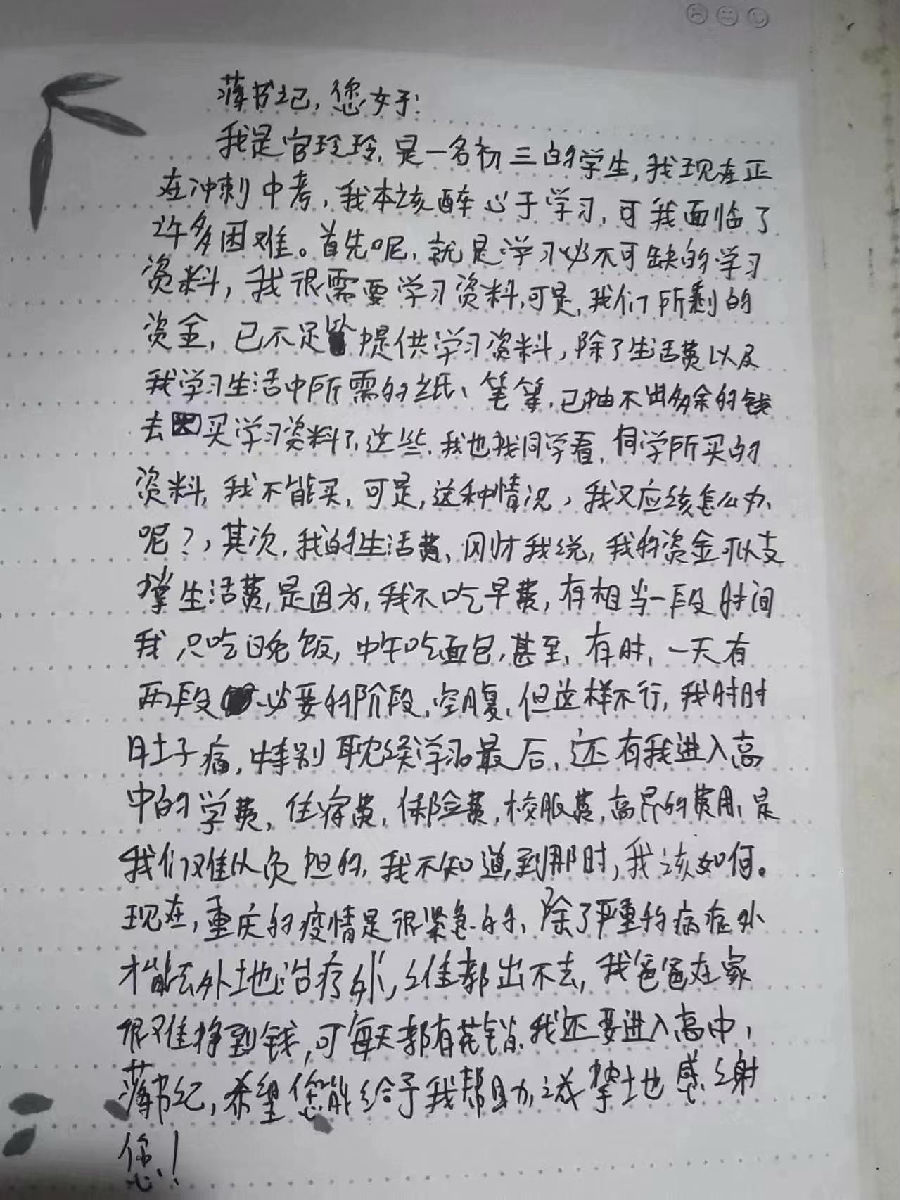 薄书记，您好！
我是官玲玲，是一名初三的学生，我现在正
在冲刺中考，我本该醉心于学习，可我面临了
许多困难。首先呢，就是学习必不可缺的学习
资料，我很需要学习资料，可是，我们所剩的
资金，已不足提供学习资料，除了生活费以及
我学习生活中所需的纸、笔等，已抽不出多余的钱
去买学习资料了，这些，我也找同学看，同学所买的
资料，我不能买，可是，这种情况，我又应该怎么办
呢？，其次，我的生活费，刚才我说，我的资金可以支
撑生活费，是因为，我不吃早费，有相当一段时间
我只吃晚饭，中午吃面包，甚至，有时，一天有
两段必要的阶段，空腹，但这样不行，我时时
肚子痛，特别耽误学习。最后，还有我进入高
中的学费，住宿费，保险费，校服费，高昂的费用，是
我们难以负担的，我不知道，到那时，我该如何。
现在，重庆的疫情是很紧急的，除了严重的病症外
才能去外地治疗外，谁都出不去，我爸爸在家
很难挣到钱，可每天都有花销，我还要进入高中，
薄书纪，希望您能给予我帮助，诚挚地感谢
您！